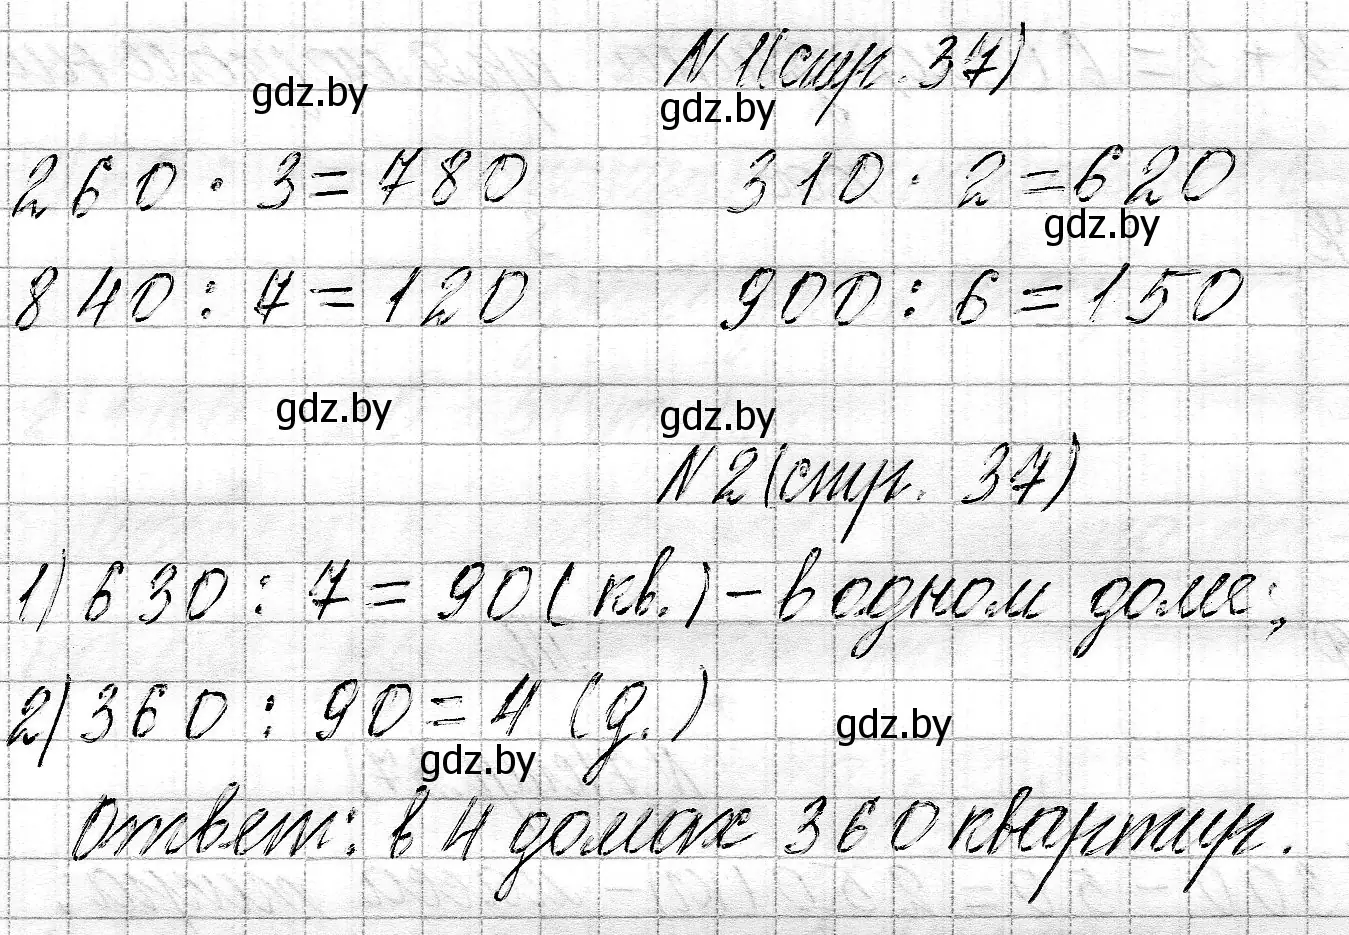 N 1(стр. 37)
gdz.by
gdz.by
260 · 3 = 780 310 · 2 = 620
gdz.by
840 : 7 = 120 900 : 6 = 150
gdz.by gdz.by
N 2(стр. 37)
1) 630 : 7 = 90 (кв.) - в одном доме;
2) 360 : 90 = 4 (д.)
gdz.by
gdz.by
Ответ: в 4 домах 360 квартир.